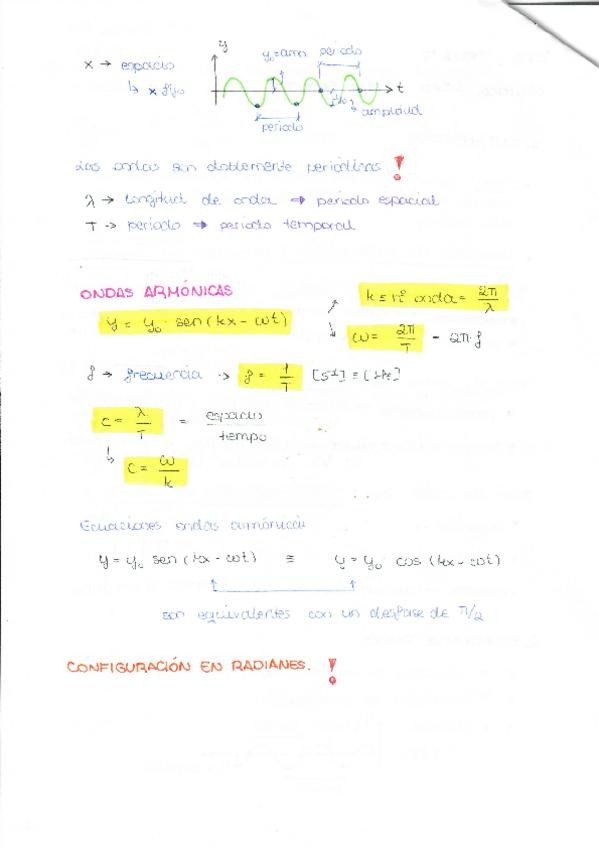 x → espacio
↳ x fijo
y
y₀ = amp.
periodo
t
amplitud
periodo
Las ondas son doblemente periódicas !
λ → longitud de onda ⇒ periodo espacial
T → periodo ⇒ periodo temporal
ONDAS ARMÓNICAS
y = y₀ sen (kx - ωt)
k ≡ nº onda = 2π/λ
ω = 2π/T = 2π·f
f → frecuencia → f = 1/T [s⁻¹] ≡ [Hz]
c = λ/T = espacio/tempo
↳ c = ω/k
Ecuaciones ondas armónicas
y = y₀ sen (kx - ωt) ≡ y = y₀ cos (kx - ωt)
son equivalentes con un desfase de π/2
CONFIGURACIÓN EN RADIANES. !